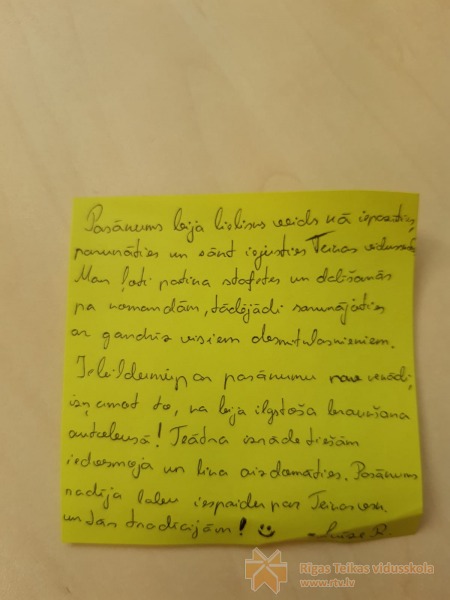 Pasākums bija lielisks veids kā iepazīties,
parunāties un sākt iejusties Teikas vidussk.
Man ļoti patika stafetes un dalīšanās
pa komandām, tādējādi sarunājoties
ar gandrīz visiem desmitklasniekiem.
Iebildumi par pasākumu nav vienādi,
izņemot to, ka bija ilgstoša braukšana
autobusā! Teātra izrāde tiešām
iedvesmoja un lika aizdomāties. Pasākums
radīja labu iespaidu par Teikas vsk.
un tās tradīcijām!
Rīgas Teikas vidusskola
www.rtv.lv